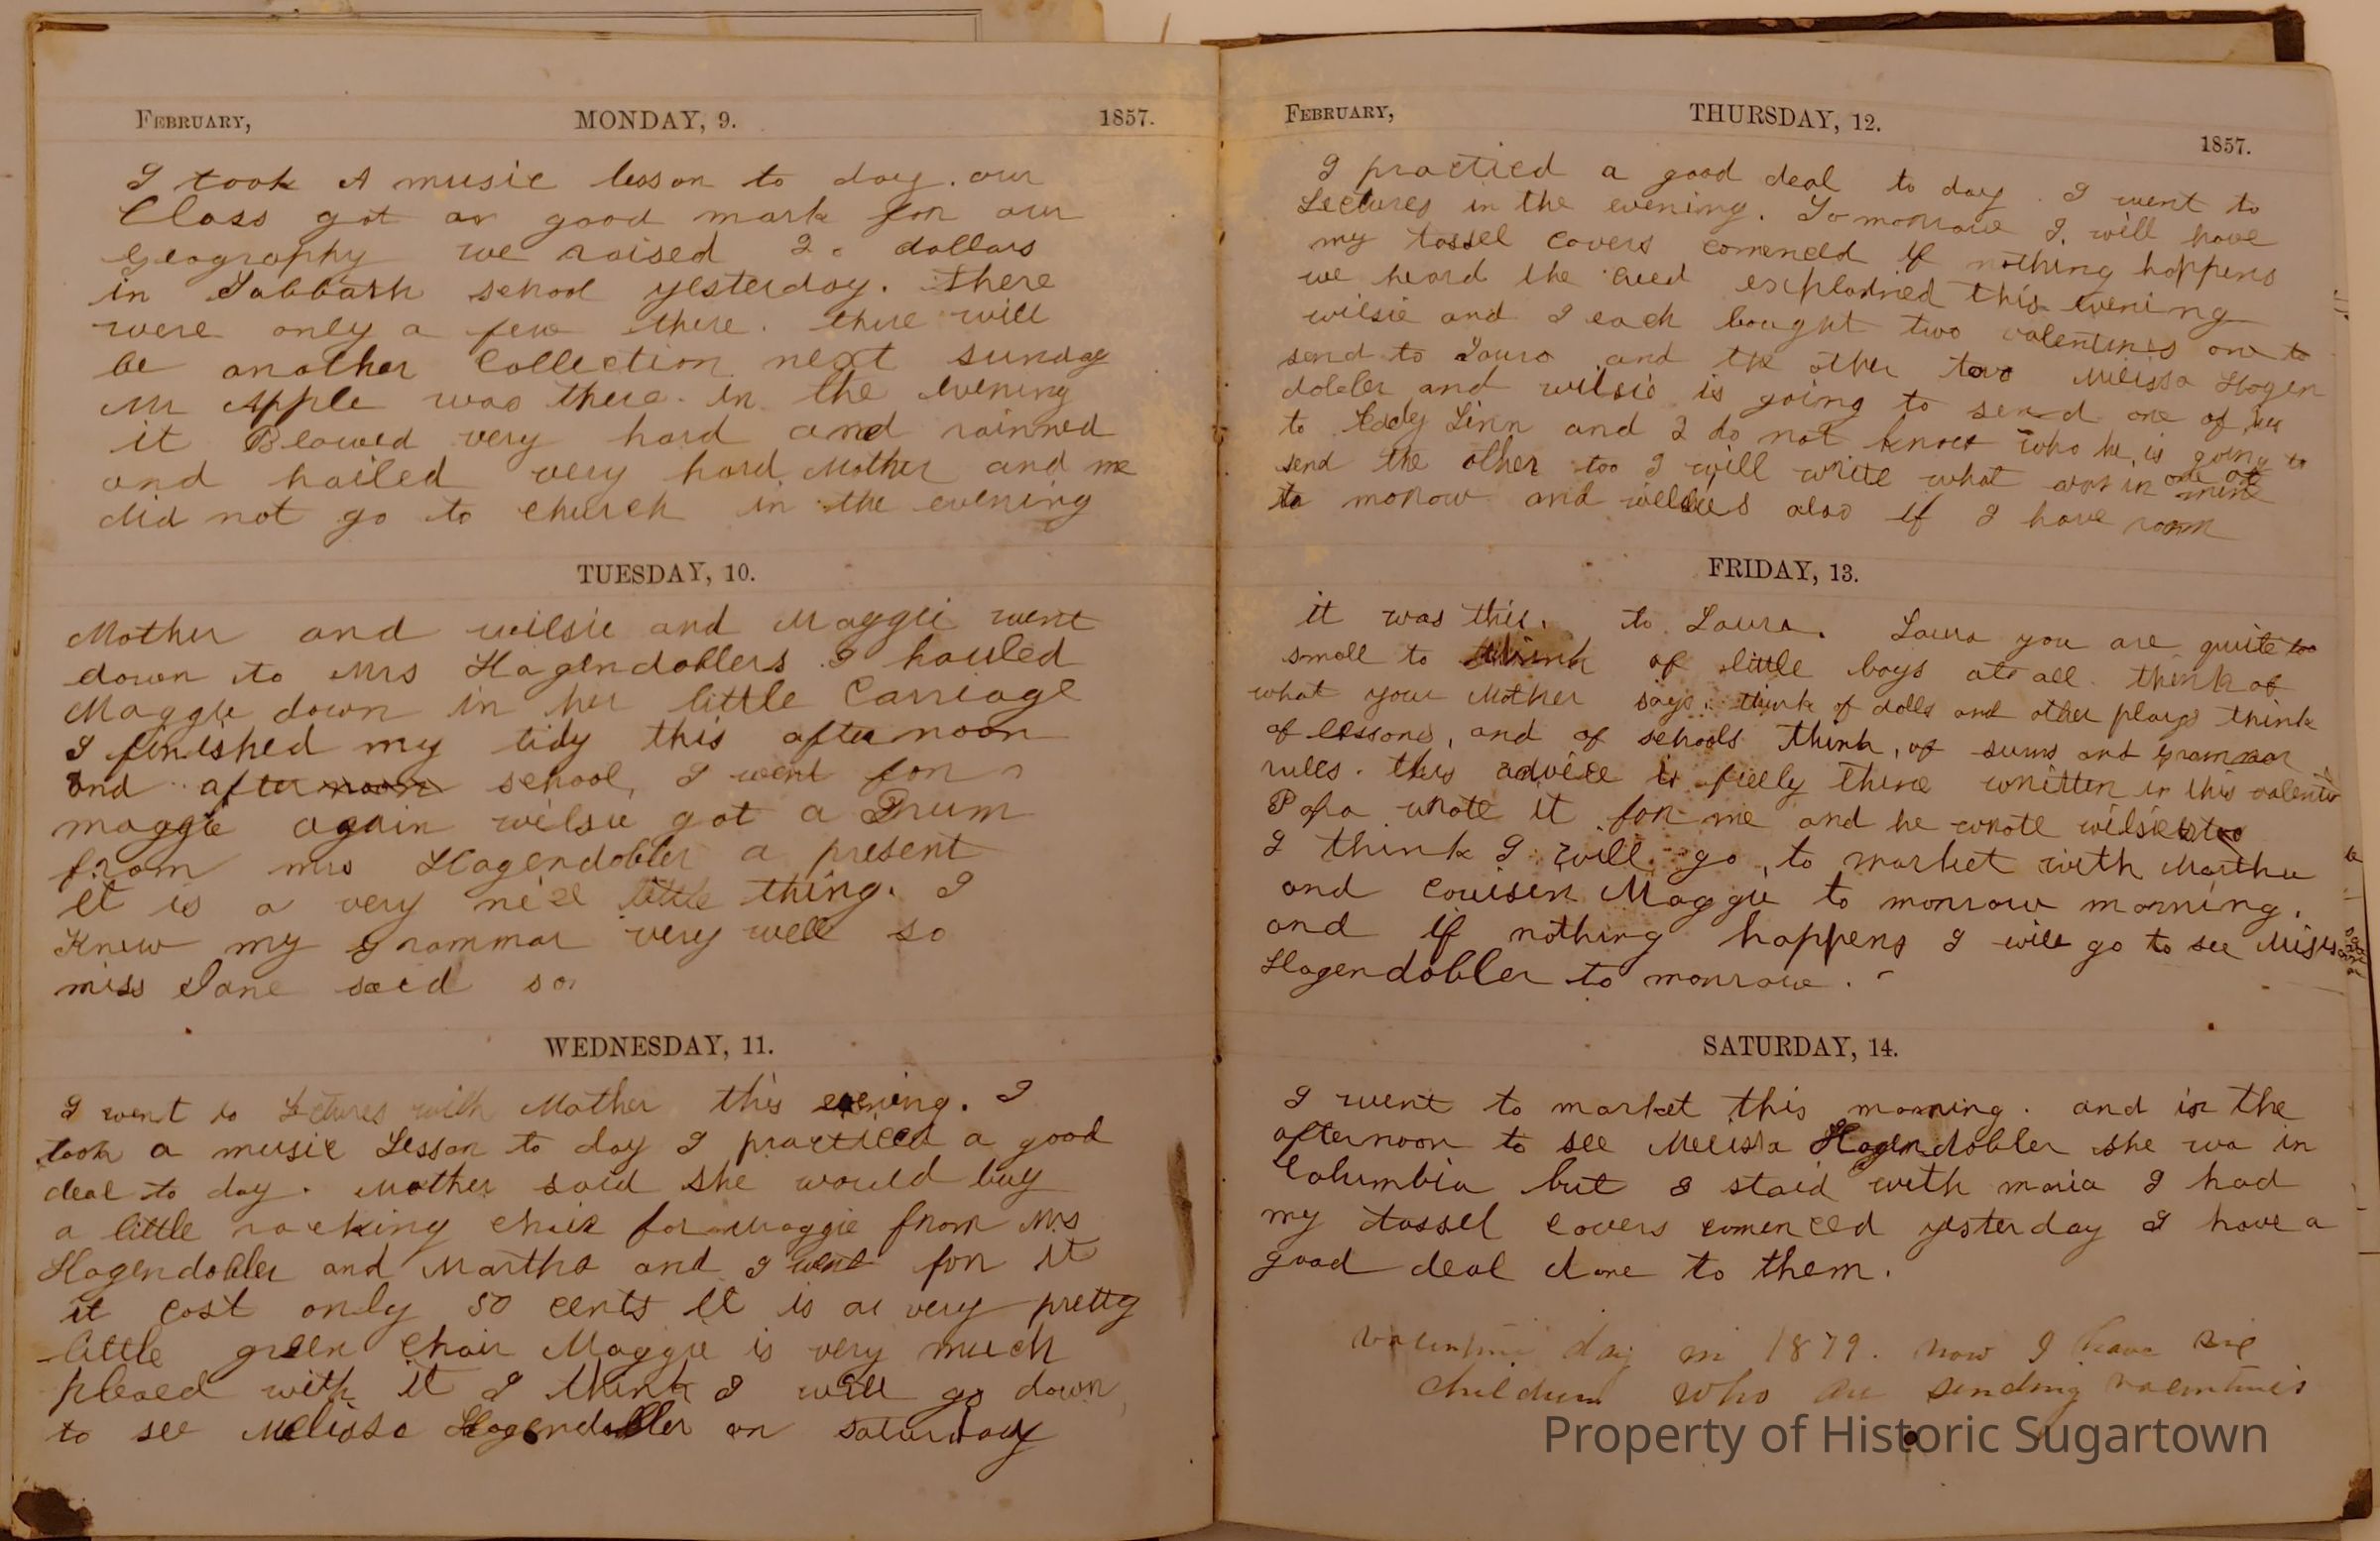 February, MONDAY, 9. 1857.
I took A music leason to day. our
Class got a good mark for our
geography we raised 20 dollars
in Sabbath school yesterday. there
were only a few there. there will
be another Collection next sunday
Mr Apple was there. in the evening
it Blowed very hard and rainned
and hailed very hard Mother and me
did not go to church in the evening
TUESDAY, 10.
Mother and wilsie and Maggie went
down to Mrs Hagendoblers I hauled
Maggie down in her little Carriage
I finished my tidy this afternoon
and afternoon school, I went for
maggie again wilsie got a Drum
from mrs Hagendobler a present
it is a very nice little thing. I
Knew my grammar very well so
miss Jane said so
WEDNESDAY, 11.
I went to Lectures with Mother this evening. I
took a music Lesson to day I practiced a good
deal to day. Mother said she would buy
a little rocking chair for Maggie from Mrs
Hagendobler and Martha and I went for it
it cost only 50 cents it is a very pretty
little green chair Maggie is very much
pleased with it I think I will go down
to see Melissa Hagendobler on saturday
February, THURSDAY, 12. 1857.
I practied a good deal to day. I went to
Lectures in the evening. Tomorrow I will have
my tassel covers comenced if nothing happens
we heard the creed explained this evening
wilsie and I each bought two valentines one to
send to Laura and the other two Melissa Hagen
dobler and wilsie is going to send one of his
to Lady Linn and I do not know who he is going to
send the other too I will write what was in one of mine
to morow and willsies also if I have room
FRIDAY, 13.
it was this. to Laura. Laura you are quite too
small to think of little boys at all. think of
what your Mother says. think of dolls and other plays think
of lessons, and of schools think, of sums and grammar
rules. this advice is freely thine written in this valentin
Papa wrote it for me and he wrote wilsies too
I think I will go to market with Martha
and couisen Maggie to morrow morning.
and if nothing happens I will go to see Miss
Hagendobler to morrow.
SATURDAY, 14.
I went to market this morning. and in the
afternoon to see Melissa Hagendobler she wa in
Columbia but I staid with maria I had
my tassel covers comenced yesterday I have a
good deal done to them.
valentine day in 1879. now I have six
children who are sending valentines
Property of Historic Sugartown